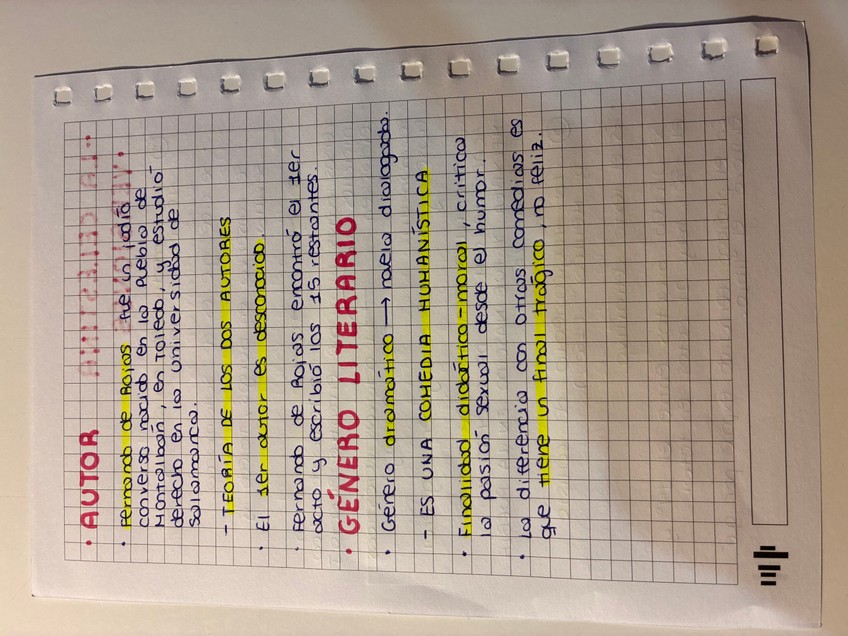 · AUTOR
· Fernando de Rojas fue un judío
converso nacido en la Puebla de
Montalbán, en Toledo, y estudió
derecho en la universidad de
Salamanca.
- TEORÍA DE LOS DOS AUTORES
· El 1er autor es desconocido.
· Fernando de Rojas encontró el 1er
acto y escribió los 15 restantes.
· GÉNERO LITERARIO
· Género dramático → novela dialogada.
- ES UNA COMEDIA HUMANÍSTICA
· Finalidad didáctico-moral, critica
la pasión sexual desde el humor.
· La diferencia con otras comedias es
que tiene un final trágico, no feliz.